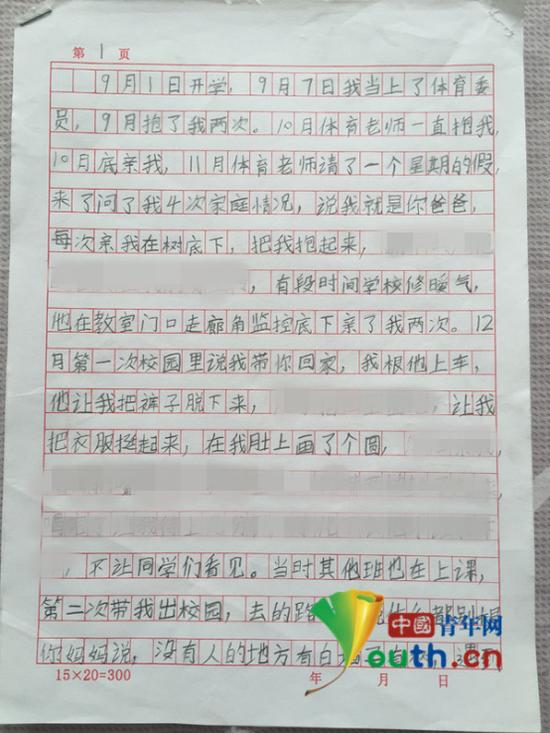 第 1 页
9月1日开学，9月7日我当上了体育委
员，9月抱了我两次。10月体育老师一直抱我，
10月底亲我，11月体育老师请了一个星期的假，
来了问了我4次家庭情况，说我就是你爸爸，
每次亲我在树底下，把我抱起来，
有段时间学校修暖气，
他在教室门口走廊角监控底下亲了我两次。12
月第一次校园里说我带你回家，我根他上车，
他让我把裤子脱下来，，让我
把衣服挺起来，在我肚上画了个圆，
，不让同学们看见。当时其他班也在上课，
第二次带我出校园，去的路都别跟
你妈妈说，没有人的地方有白
15×20=300 年 月 日
中國青年网
Youth.cn